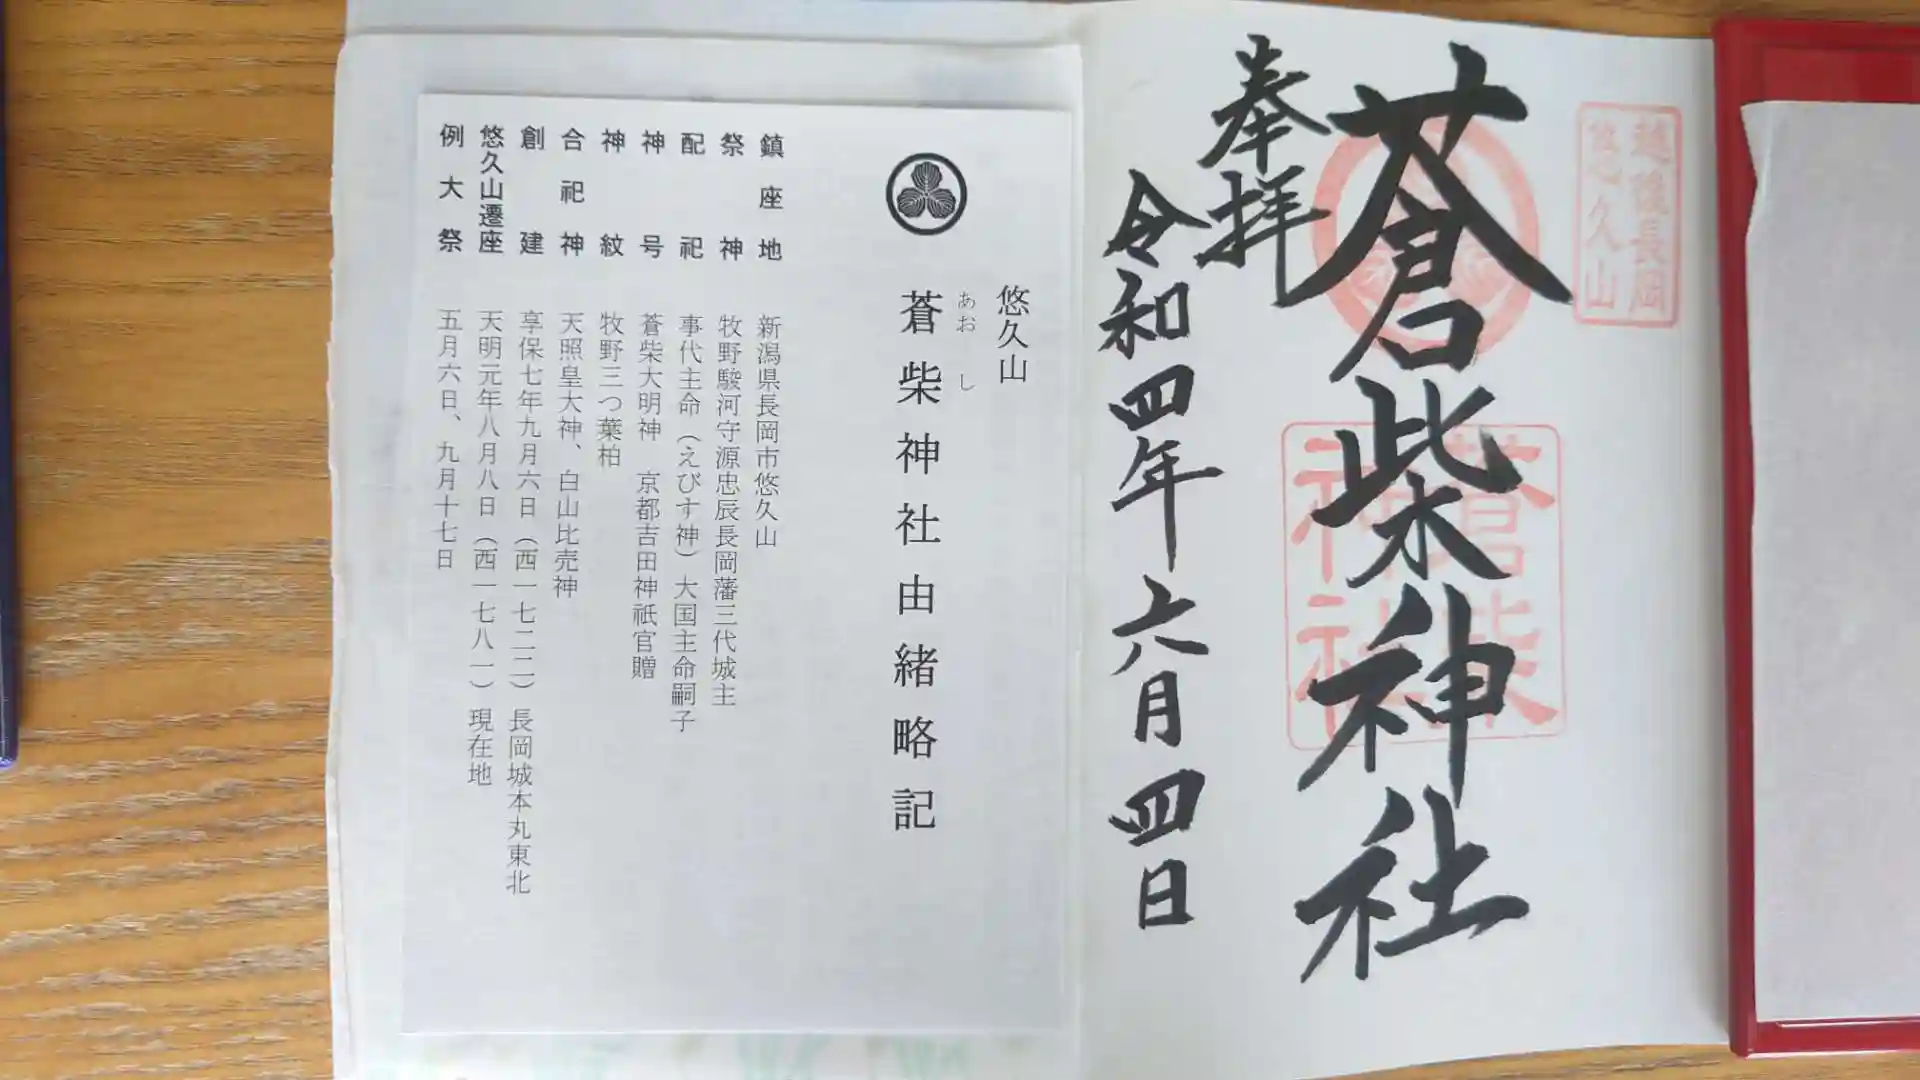 越後長岡
悠久山
蒼柴神社
蒼柴
神社
奉拝
令和四年六月四日
悠久山
あおし
蒼柴神社由緒略記
鎮座地 新潟県長岡市悠久山
祭神 牧野駿河守源忠辰長岡藩三代城主
配祀 事代主命(えびす神)大国主命嗣子
神号 蒼柴大明神 京都吉田神祇官贈
神紋 牧野三つ葉柏
合祀神 天照皇大神、白山比売神
創建 享保七年九月六日(西一七二二)長岡城本丸東北
悠久山遷座 天明元年八月八日(西一七八一)現在地
例大祭 五月六日、九月十七日